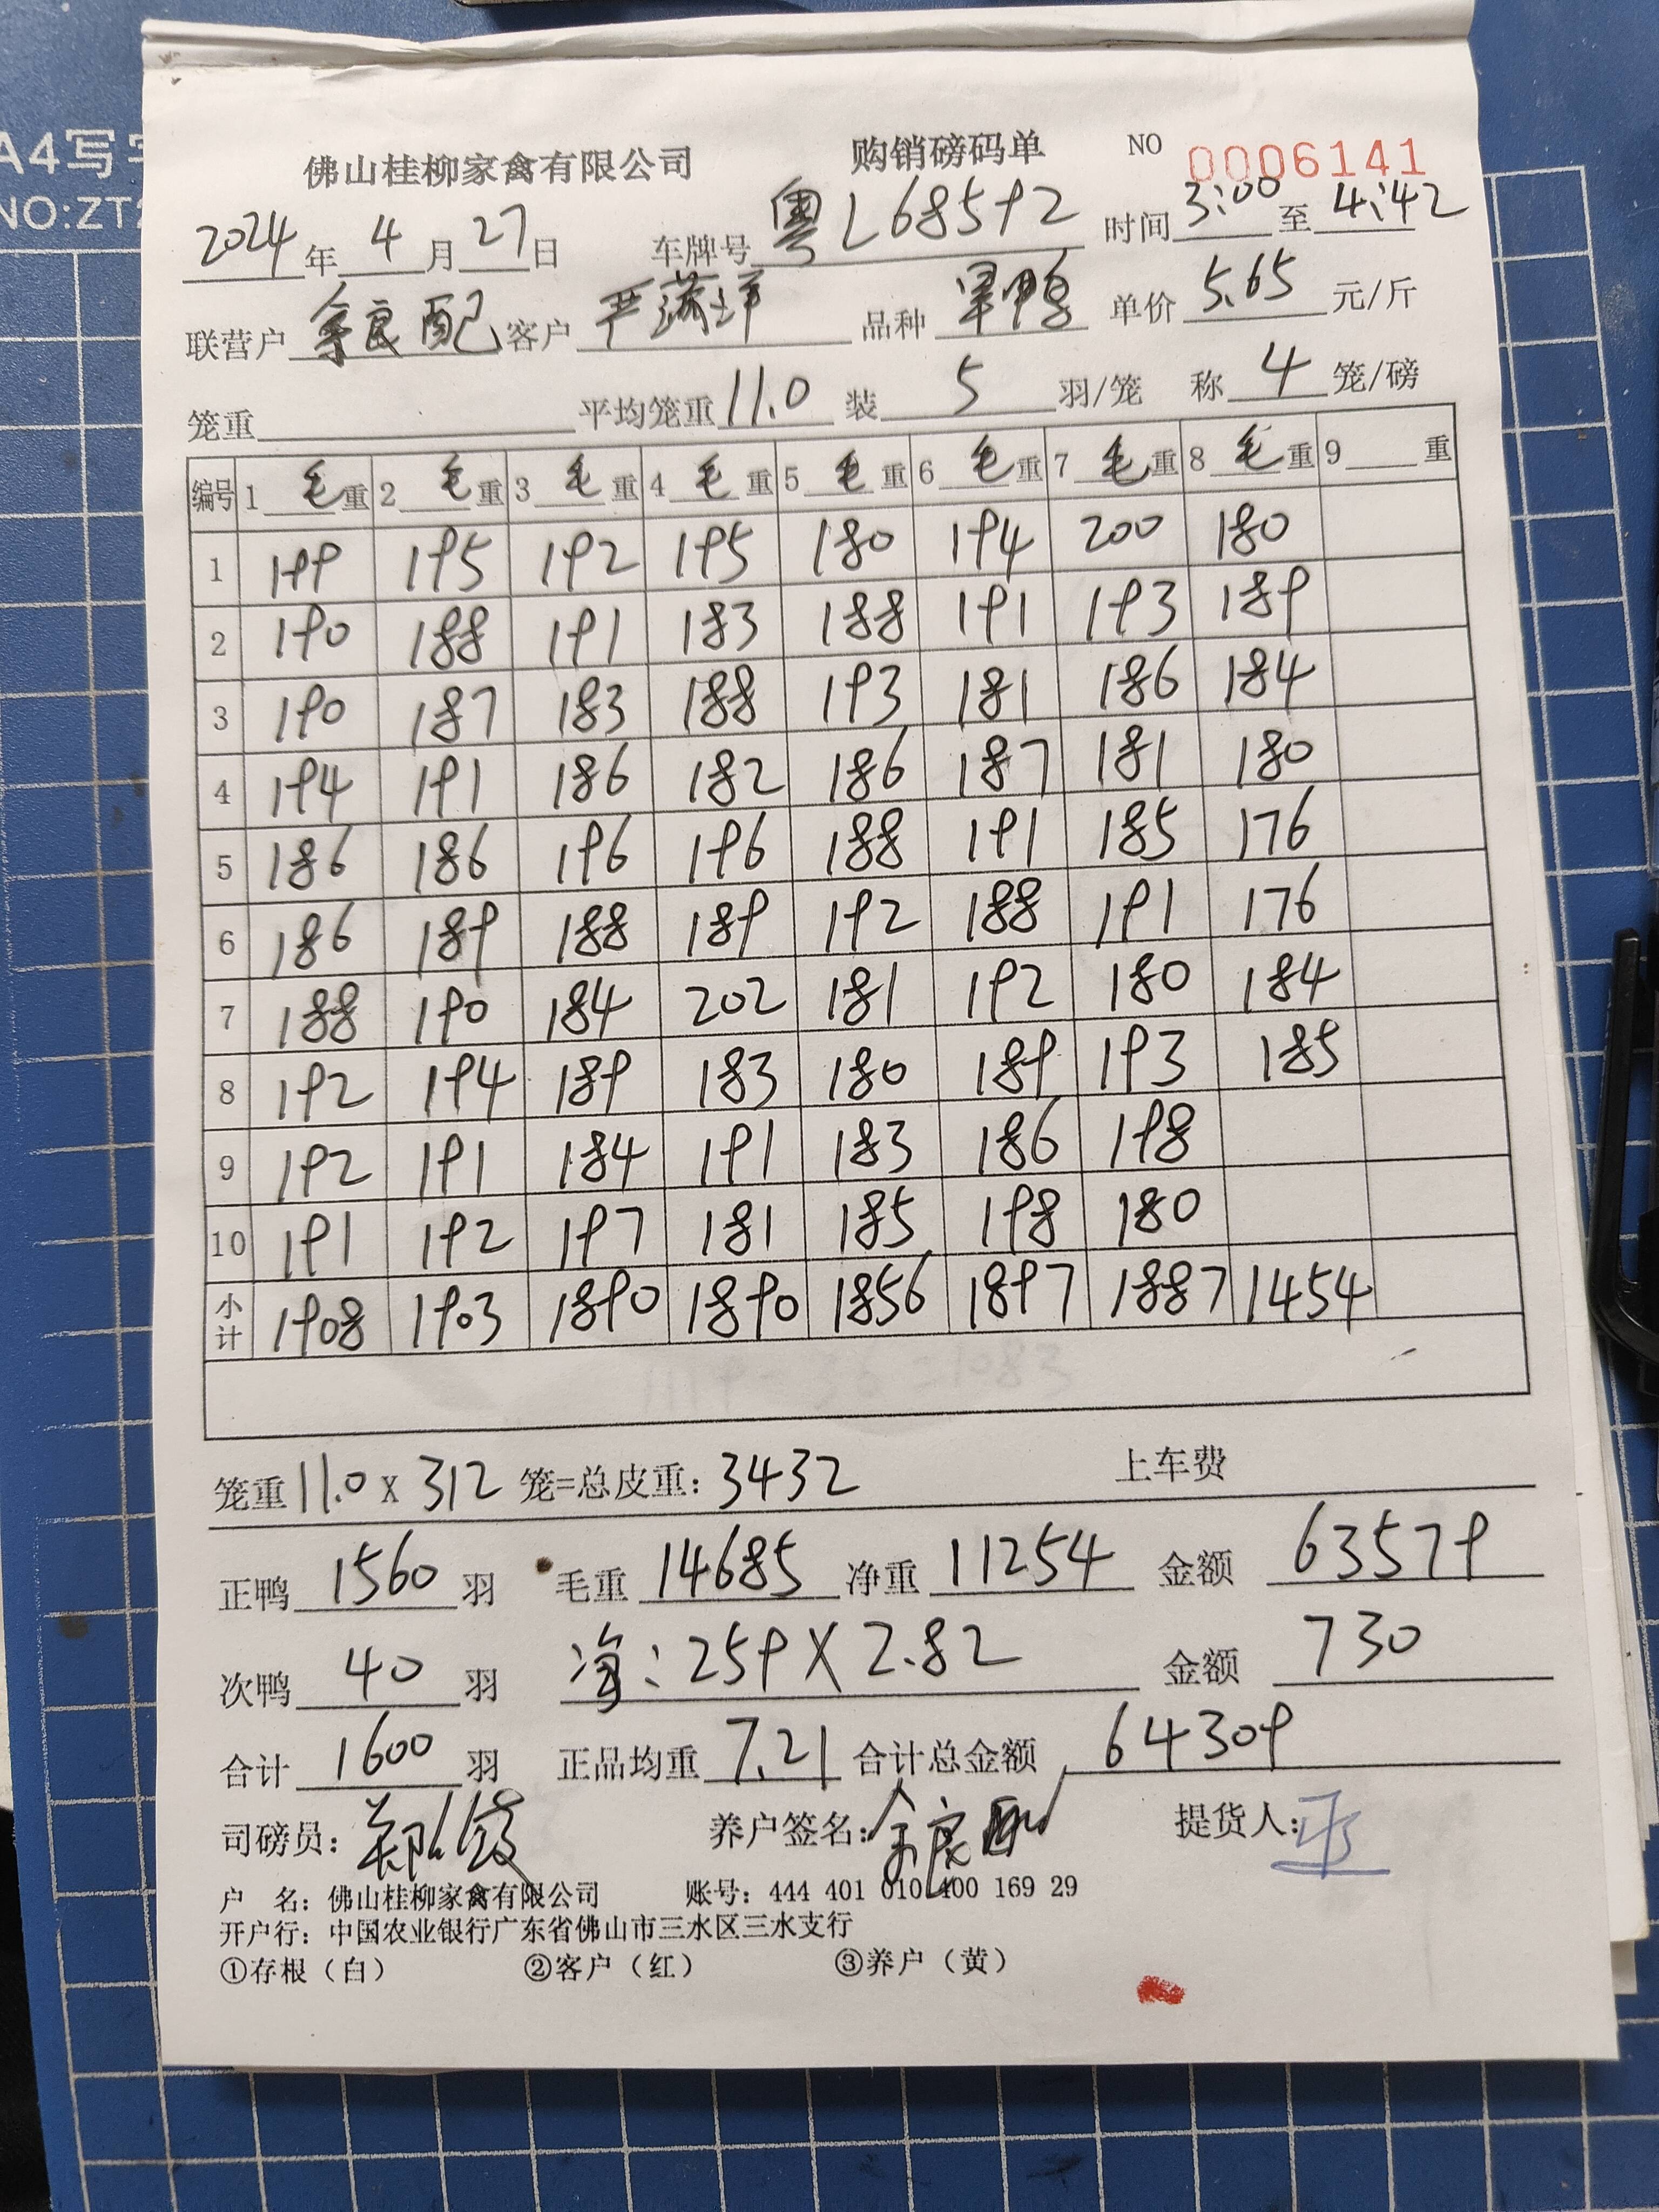 A4写
NO:ZT
佛山桂柳家禽有限公司 购销磅码单 NO 0006141
2024年4月27日 车牌号 粤L68592 时间 3:00 至 4:42
联营户 余良配 客户 品种 单价 5.65 元/斤
笼重 平均笼重 11.0 装 5 羽/笼 称 4 笼/磅
编号 1 毛重 2 毛重 3 毛重 4 毛重 5 毛重 6 毛重 7 毛重 8 毛重 9 重
1 199 195 192 195 180 194 200 180
2 190 188 191 183 188 191 193 189
3 190 187 183 188 193 181 186 184
4 194 191 186 182 186 187 181 180
5 186 186 196 196 188 191 185 176
6 186 189 188 189 192 188 191 176
7 188 190 184 202 181 192 180 184
8 192 194 189 183 180 189 193 185
9 192 191 184 191 183 186 198
10 191 192 197 181 185 198 180
小计 1908 1903 1890 1890 1856 1897 1887 1454
笼重 11.0 x 312 笼=总皮重: 3432 上车费
正鸭 1560 羽 毛重 14685 净重 11254 金额 63579
次鸭 40 羽 净: 259 X 2.82 金额 730
合计 1600 羽 正品均重 7.21 合计总金额 64309
司磅员: 养户签名: 余良配 提货人:
户 名: 佛山桂柳家禽有限公司 账号: 444 401 010 400 169 29
开户行: 中国农业银行广东省佛山市三水区三水支行
①存根（白） ②客户（红） ③养户（黄）